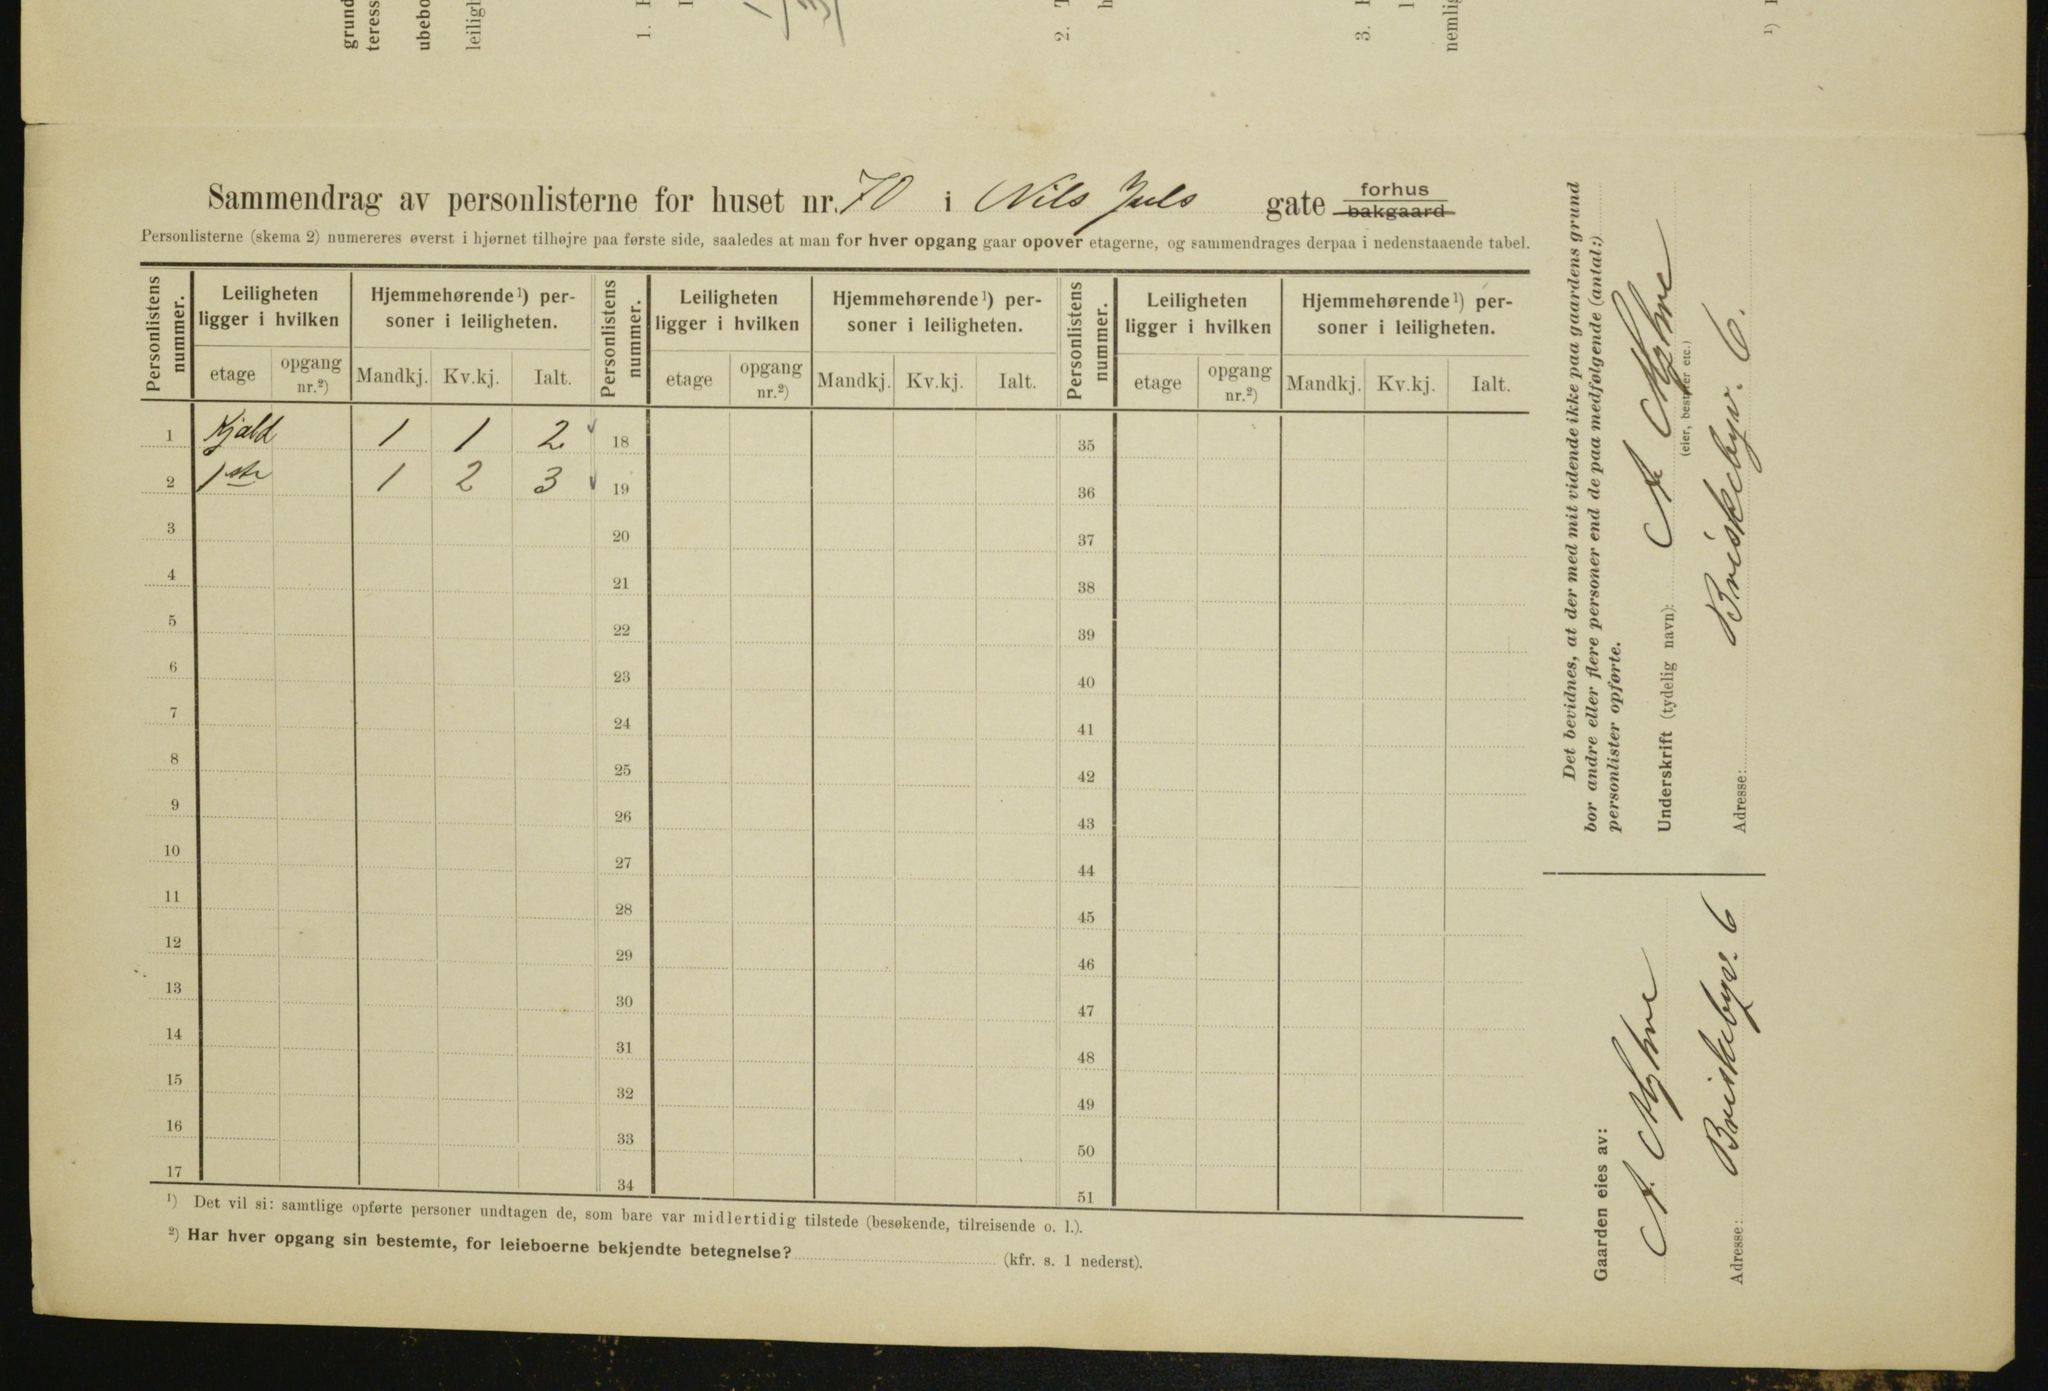 grund
teress
ubebo
leiligh
1.
2.
3.
nemlig
1)
Sammendrag av personlisterne for huset nr. 70 i Nils Juls gate forhus
bakgaard
Personlisterne (skema 2) numereres øverst i hjørnet tilhøjre paa første side, saaledes at man for hver opgang gaar opover etagerne, og sammendrages derpaa i nedenstaaende tabel.
Personlistens nummer. Leiligheten ligger i hvilken Hjemmehørende 1) personer i leiligheten. Personlistens nummer. Leiligheten ligger i hvilken Hjemmehørende 1) personer i leiligheten. Personlistens nummer. Leiligheten ligger i hvilken Hjemmehørende 1) personer i leiligheten.
etage opgang nr.2) Mandkj. Kv.kj. Ialt. etage opgang nr.2) Mandkj. Kv.kj. Ialt. etage opgang nr.2) Mandkj. Kv.kj. Ialt.
1 Kjæld 1 1 2 18 35
2 1ste 1 2 3 19 36
3 20 37
4 21 38
5 22 39
6 23 40
7 24 41
8 25 42
9 26 43
10 27 44
11 28 45
12 29 46
13 30 47
14 31 48
15 32 49
16 33 50
17 34 51
1) Det vil si: samtlige opførte personer undtagen de, som bare var midlertidig tilstede (besøkende, tilreisende o. l.).
2) Har hver opgang sin bestemte, for leieboerne bekjendte betegnelse? (kfr. s. 1 nederst).
Det bevidnes, at der med mit vidende ikke paa gaardens grund
bor andre eller flere personer end de paa medfølgende (antal:)
personlister opførte.
Underskrift (tydelig navn): A. Myhre
(eier, bestyrer etc.)
Adresse: Briskebyv. 6.
Gaarden eies av:
A. Myhre
Adresse: Briskebyv. 6